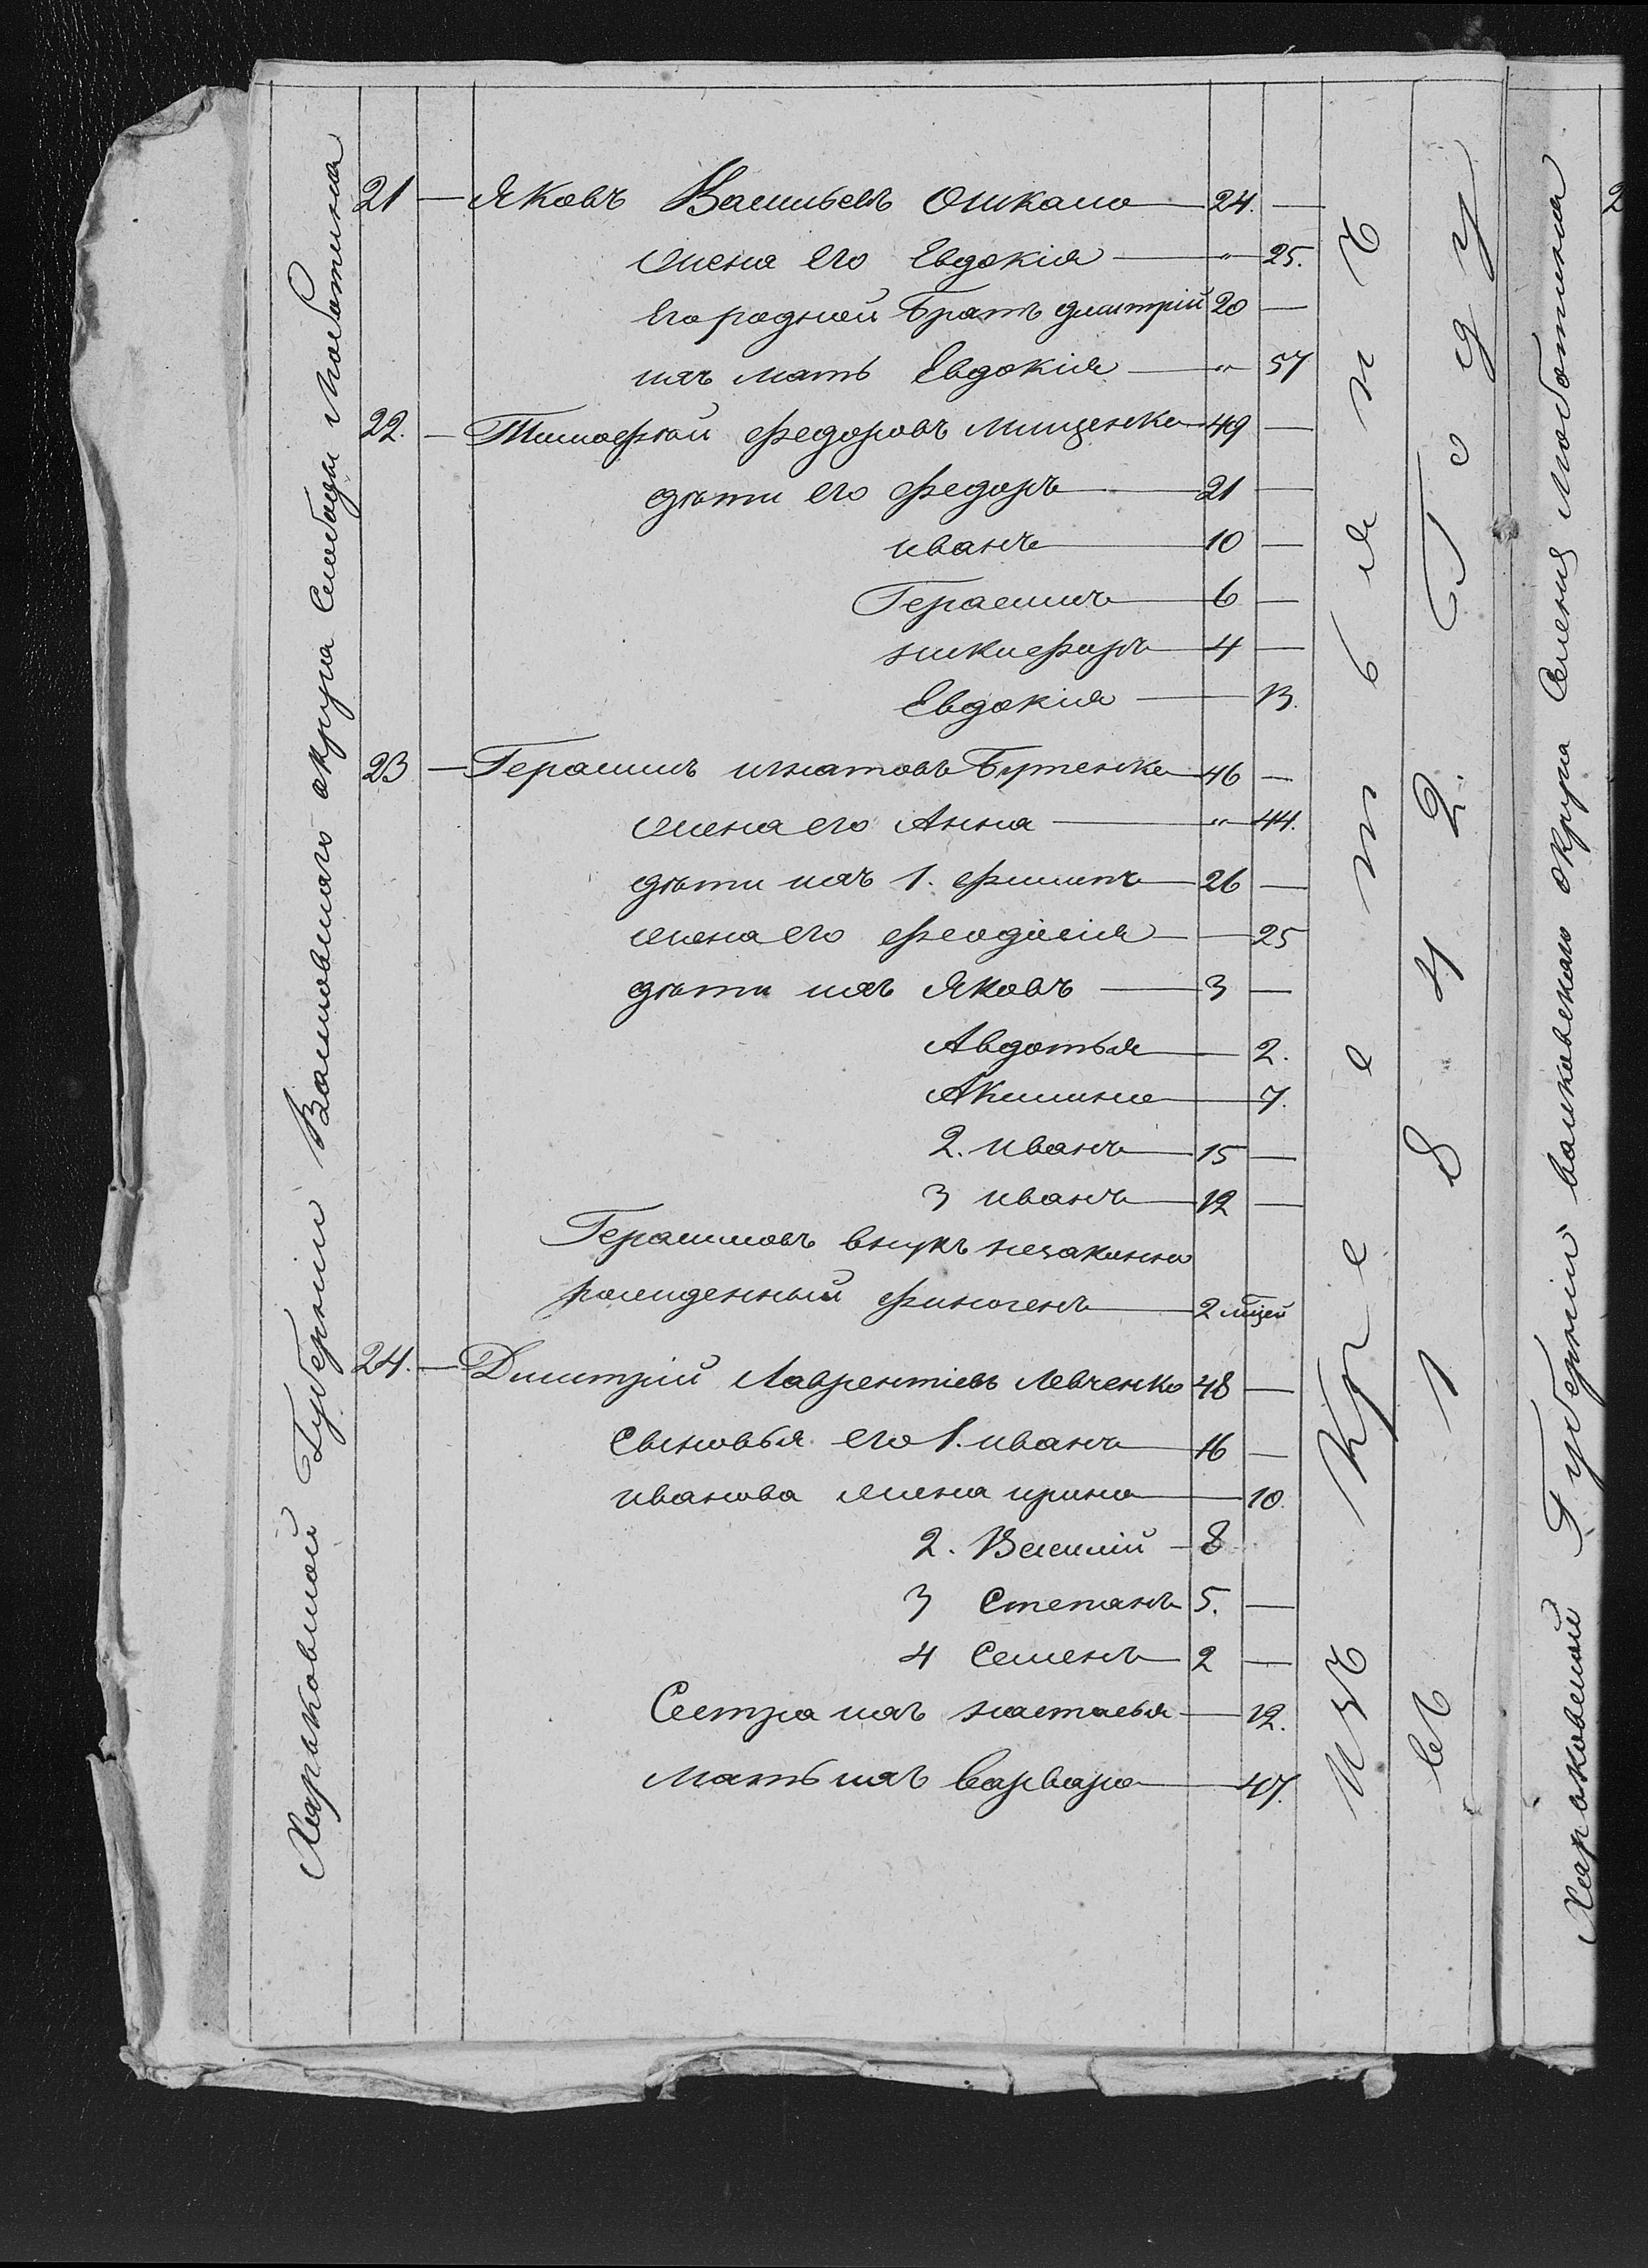 Харьковской Губерніи Валковскаго округа Слободы Люботина
21 — Яковъ Васильевъ Ошкало 24. —
жена его Евдокія — " 25.
Его родной Братъ дмитрій 20 —
ихъ мать Евдокія — " 57
22. — Тимофѣй федоровъ мищенко 49 —
дѣти его федоръ 21 —
иванъ 10 —
Герасимъ 6 —
никифоръ 4 —
Евдокія — 13.
23 — Герасимъ игнатовъ Бутенко 46 —
жена его Анна — " 44.
дѣти ихъ 1. филипъ 26 —
жена его феодосія — 25
дѣти ихъ Яковъ — 3 —
Авдотья — 2.
Акилина — 7.
2. иванъ 15 —
3 иванъ 12 —
Герасимовъ внукъ незаконно
рожденный финогенъ 2 мѣсец
24. — Дмитрій Лаврентіевъ Левченко 48 —
Сыновья его 1. иванъ 16 —
иванова жена ирина 10.
2. Василій — 8
3 Степанъ 5. —
4 Семенъ 2 —
Сестра ихъ настасья — 12.
Мать ихъ варвара 47.
Изъ Крестьянъ
въ 1842. Году
Харьковской Губерніи валковскаго округа Селенія Люботина
2